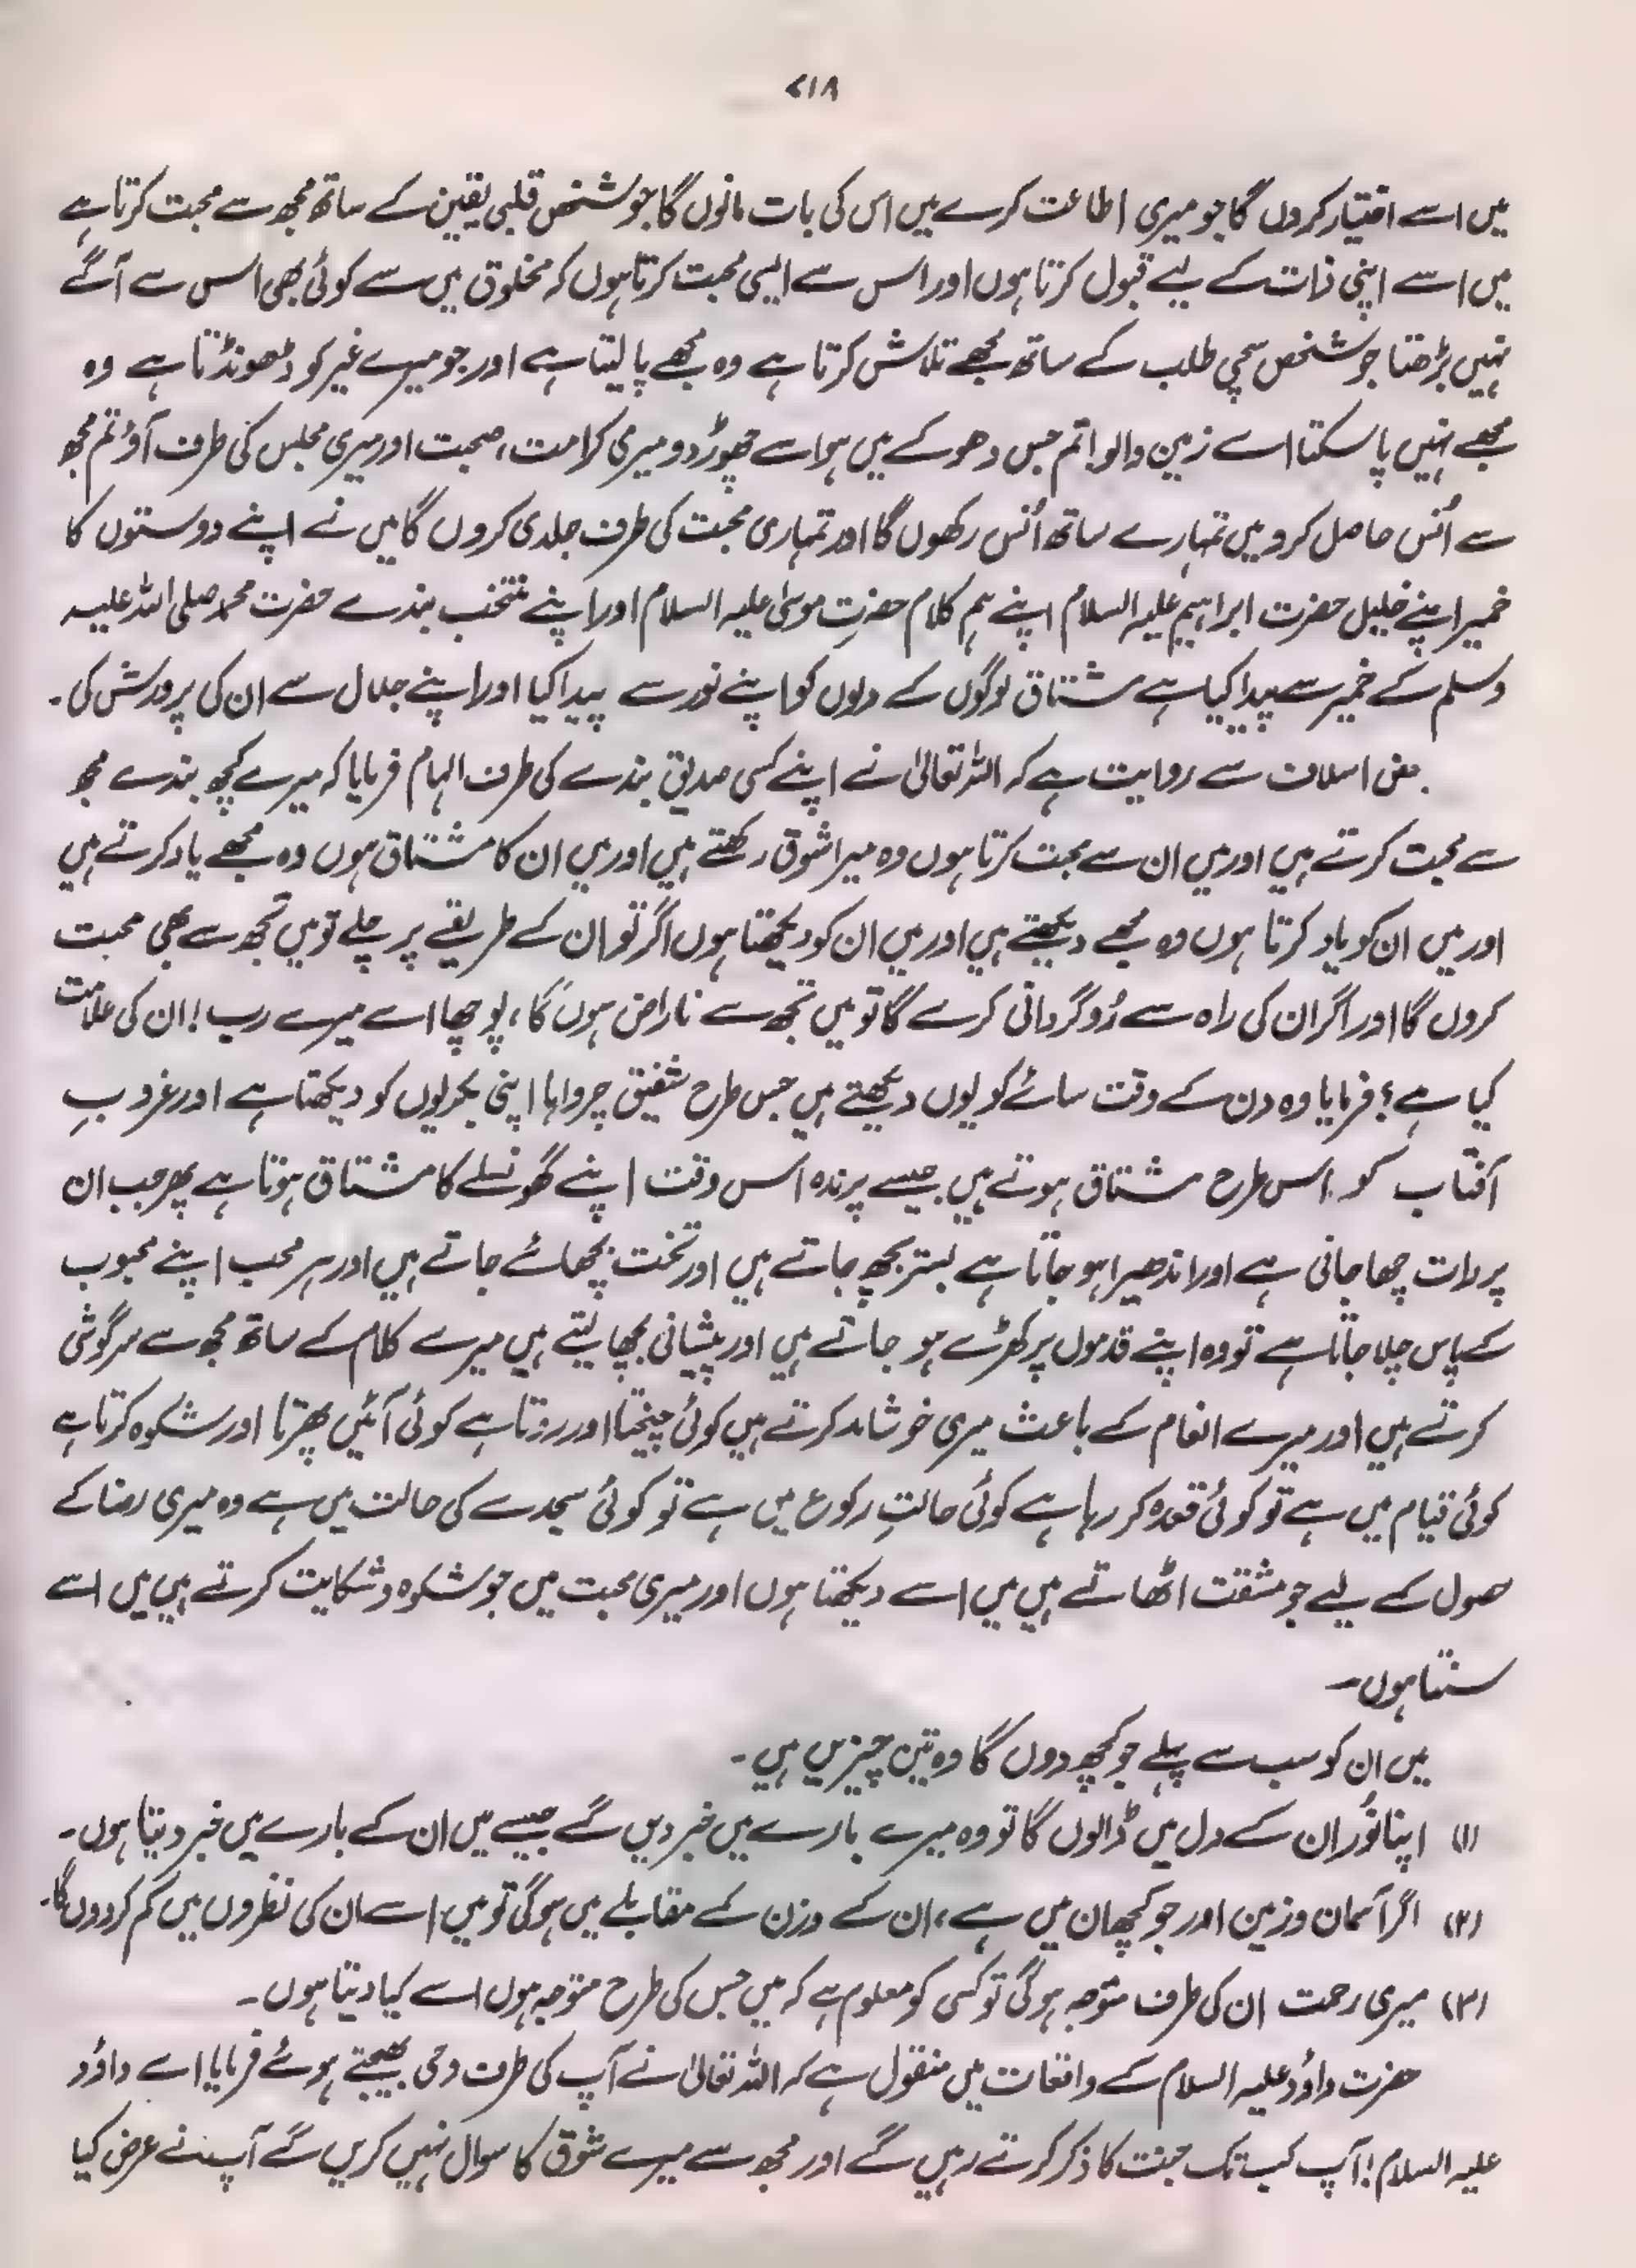 ۷۱۸
میں اسے اختیار کروں گا جو میری اطاعت کرے میں اس کی بات مانوں گا جو شخص قلبی یقین کے ساتھ مجھ سے محبت کرتا ہے
میں اسے اپنی ذات کے لیے قبول کرتا ہوں اور اس سے ایسی محبت کرتا ہوں کہ مخلوق میں سے کوئی بھی اس سے آگے
نہیں بڑھتا جو شخص سچی طلب کے ساتھ مجھے تلاش کرتا ہے وہ مجھے پا لیتا ہے اور جو میرے غیر کو ڈھونڈتا ہے وہ
مجھے نہیں پا سکتا اے زمین والو! تم جس دھوکے میں ہو اسے چھوڑ دو میری کرامت، صحبت اور میری مجلس کی طرف آؤ تم مجھ
سے اُنس حاصل کرو میں تمہارے ساتھ اُنس رکھوں گا اور تمہاری محبت کی طرف جلدی کروں گا میں نے اپنے دوستوں کا
خمیر اپنے خلیل حضرت ابراہیم علیہ السلام اپنے ہم کلام حضرتِ موسیٰ علیہ السلام اور اپنے منتخب بندے حضرت محمد صلی اللہ علیہ
وسلم کے خمیر سے پیدا کیا ہے مشتاق لوگوں کے دلوں کو اپنے نور سے پیدا کیا اور اپنے جلال سے ان کی پرورش کی۔
بعض اسلاف سے روایت ہے کہ اللہ تعالیٰ نے اپنے کسی صدیق بندے کی طرف الہام فرمایا کہ میرے کچھ بندے مجھ
سے محبت کرتے ہیں اور میں ان سے محبت کرتا ہوں وہ میرا شوق رکھتے ہیں اور میں ان کا مشتاق ہوں وہ مجھے یاد کرتے ہیں
اور میں ان کو یاد کرتا ہوں وہ مجھے دیکھتے ہیں اور میں ان کو دیکھتا ہوں اگر تو ان کے طریقے پر چلے تو میں تجھ سے بھی محبت
کروں گا اور اگر ان کی راہ سے رُوگردانی کرے گا تو میں تجھ سے ناراض ہوں گا، پوچھا اے میرے رب! ان کی علامت
کیا ہے؟ فرمایا وہ دن کے وقت سائے کو یوں دیکھتے ہیں جس طرح شفیق چرواہا اپنی بکریوں کو دیکھتا ہے اور غروبِ
آفتاب کو اس طرح مشتاق ہوتے ہیں جیسے پرندہ اس وقت اپنے گھونسلے کا مشتاق ہوتا ہے پھر جب ان
پر رات چھا جاتی ہے اور اندھیرا ہو جاتا ہے بستر بچھ جاتے ہیں اور تخت بچھائے جاتے ہیں اور ہر محب اپنے محبوب
کے پاس چلا جاتا ہے تو وہ اپنے قدموں پر کھڑے ہو جاتے ہیں اور پیشانی بچھا لیتے ہیں میرے کلام کے ساتھ مجھ سے سرگوشی
کرتے ہیں اور میرے انعام کے باعث میری خوشامد کرتے ہیں کوئی چیختا اور روتا ہے کوئی آہیں بھرتا اور شکوہ کرتا ہے
کوئی قیام میں ہے تو کوئی قعدہ کر رہا ہے کوئی حالتِ رکوع میں ہے تو کوئی سجدے کی حالت میں ہے وہ میری رضا کے
حصول کے لیے جو مشقت اٹھاتے ہیں میں اسے دیکھتا ہوں اور میری محبت میں جو شکوہ و شکایت کرتے ہیں میں اسے
سنتا ہوں۔
میں ان کو سب سے پہلے جو کچھ دوں گا وہ تین چیزیں ہیں۔
(۱) اپنا نُور ان کے دل میں ڈالوں گا تو وہ میرے بارے میں خبر دیں گے جیسے میں ان کے بارے میں خبر دیتا ہوں۔
(۲) اگر آسمان و زمین اور جو کچھ ان میں ہے، ان کے وزن کے مقابلے میں ہوگی تو میں اسے ان کی نظروں میں کم کر دوں گا۔
(۳) میری رحمت ان کی طرف متوجہ ہوگی تو کسی کو معلوم ہے کہ میں جس کی طرح متوجہ ہوں اسے کیا دیتا ہوں۔
حضرت داؤد علیہ السلام کے واقعات میں منقول ہے کہ اللہ تعالیٰ نے آپ کی طرف وحی بھیجتے ہوئے فرمایا اے داؤد
علیہ السلام! آپ کب تک جنت کا ذکر کرتے رہیں گے اور مجھ سے میرے شوق کا سوال نہیں کریں گے آپ نے عرض کیا